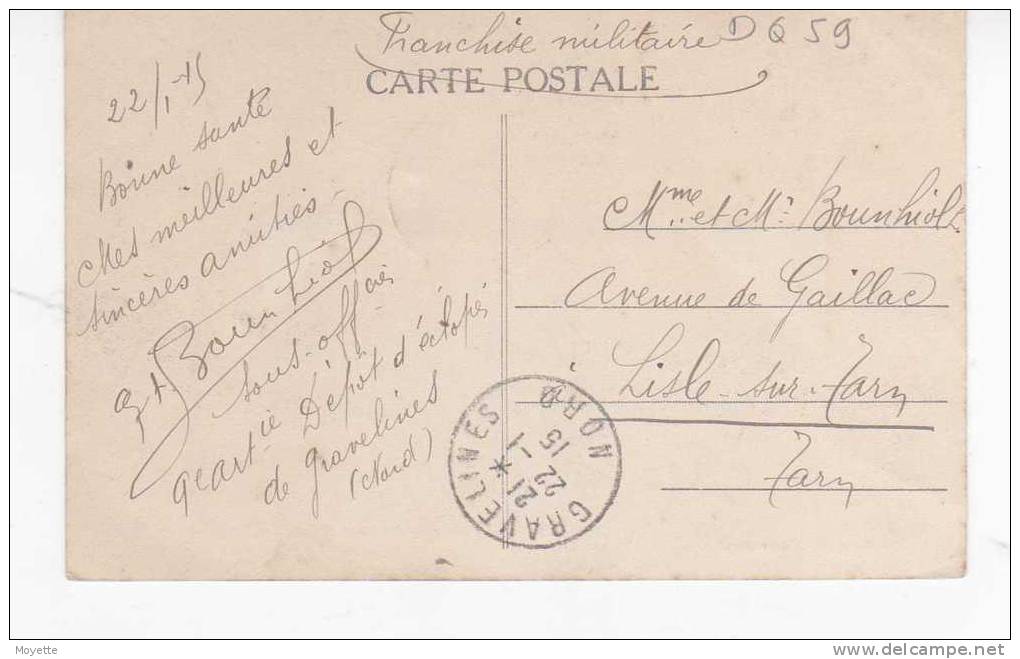 Franchise militaire D Q 59
CARTE POSTALE
22/1-15
Bonne santé
Mes meilleures et
sincères amitiés
Bounhiol
sous-off
Dépôt d'éclopés
de Gravelines
(Nord)
Mme et Mr Bounhiol
Avenue de Gaillac
à Lisle-sur-Tarn
Tarn
GRAVELINES
NORD
21 *
22 -1
15
Moyette
delcampe.net